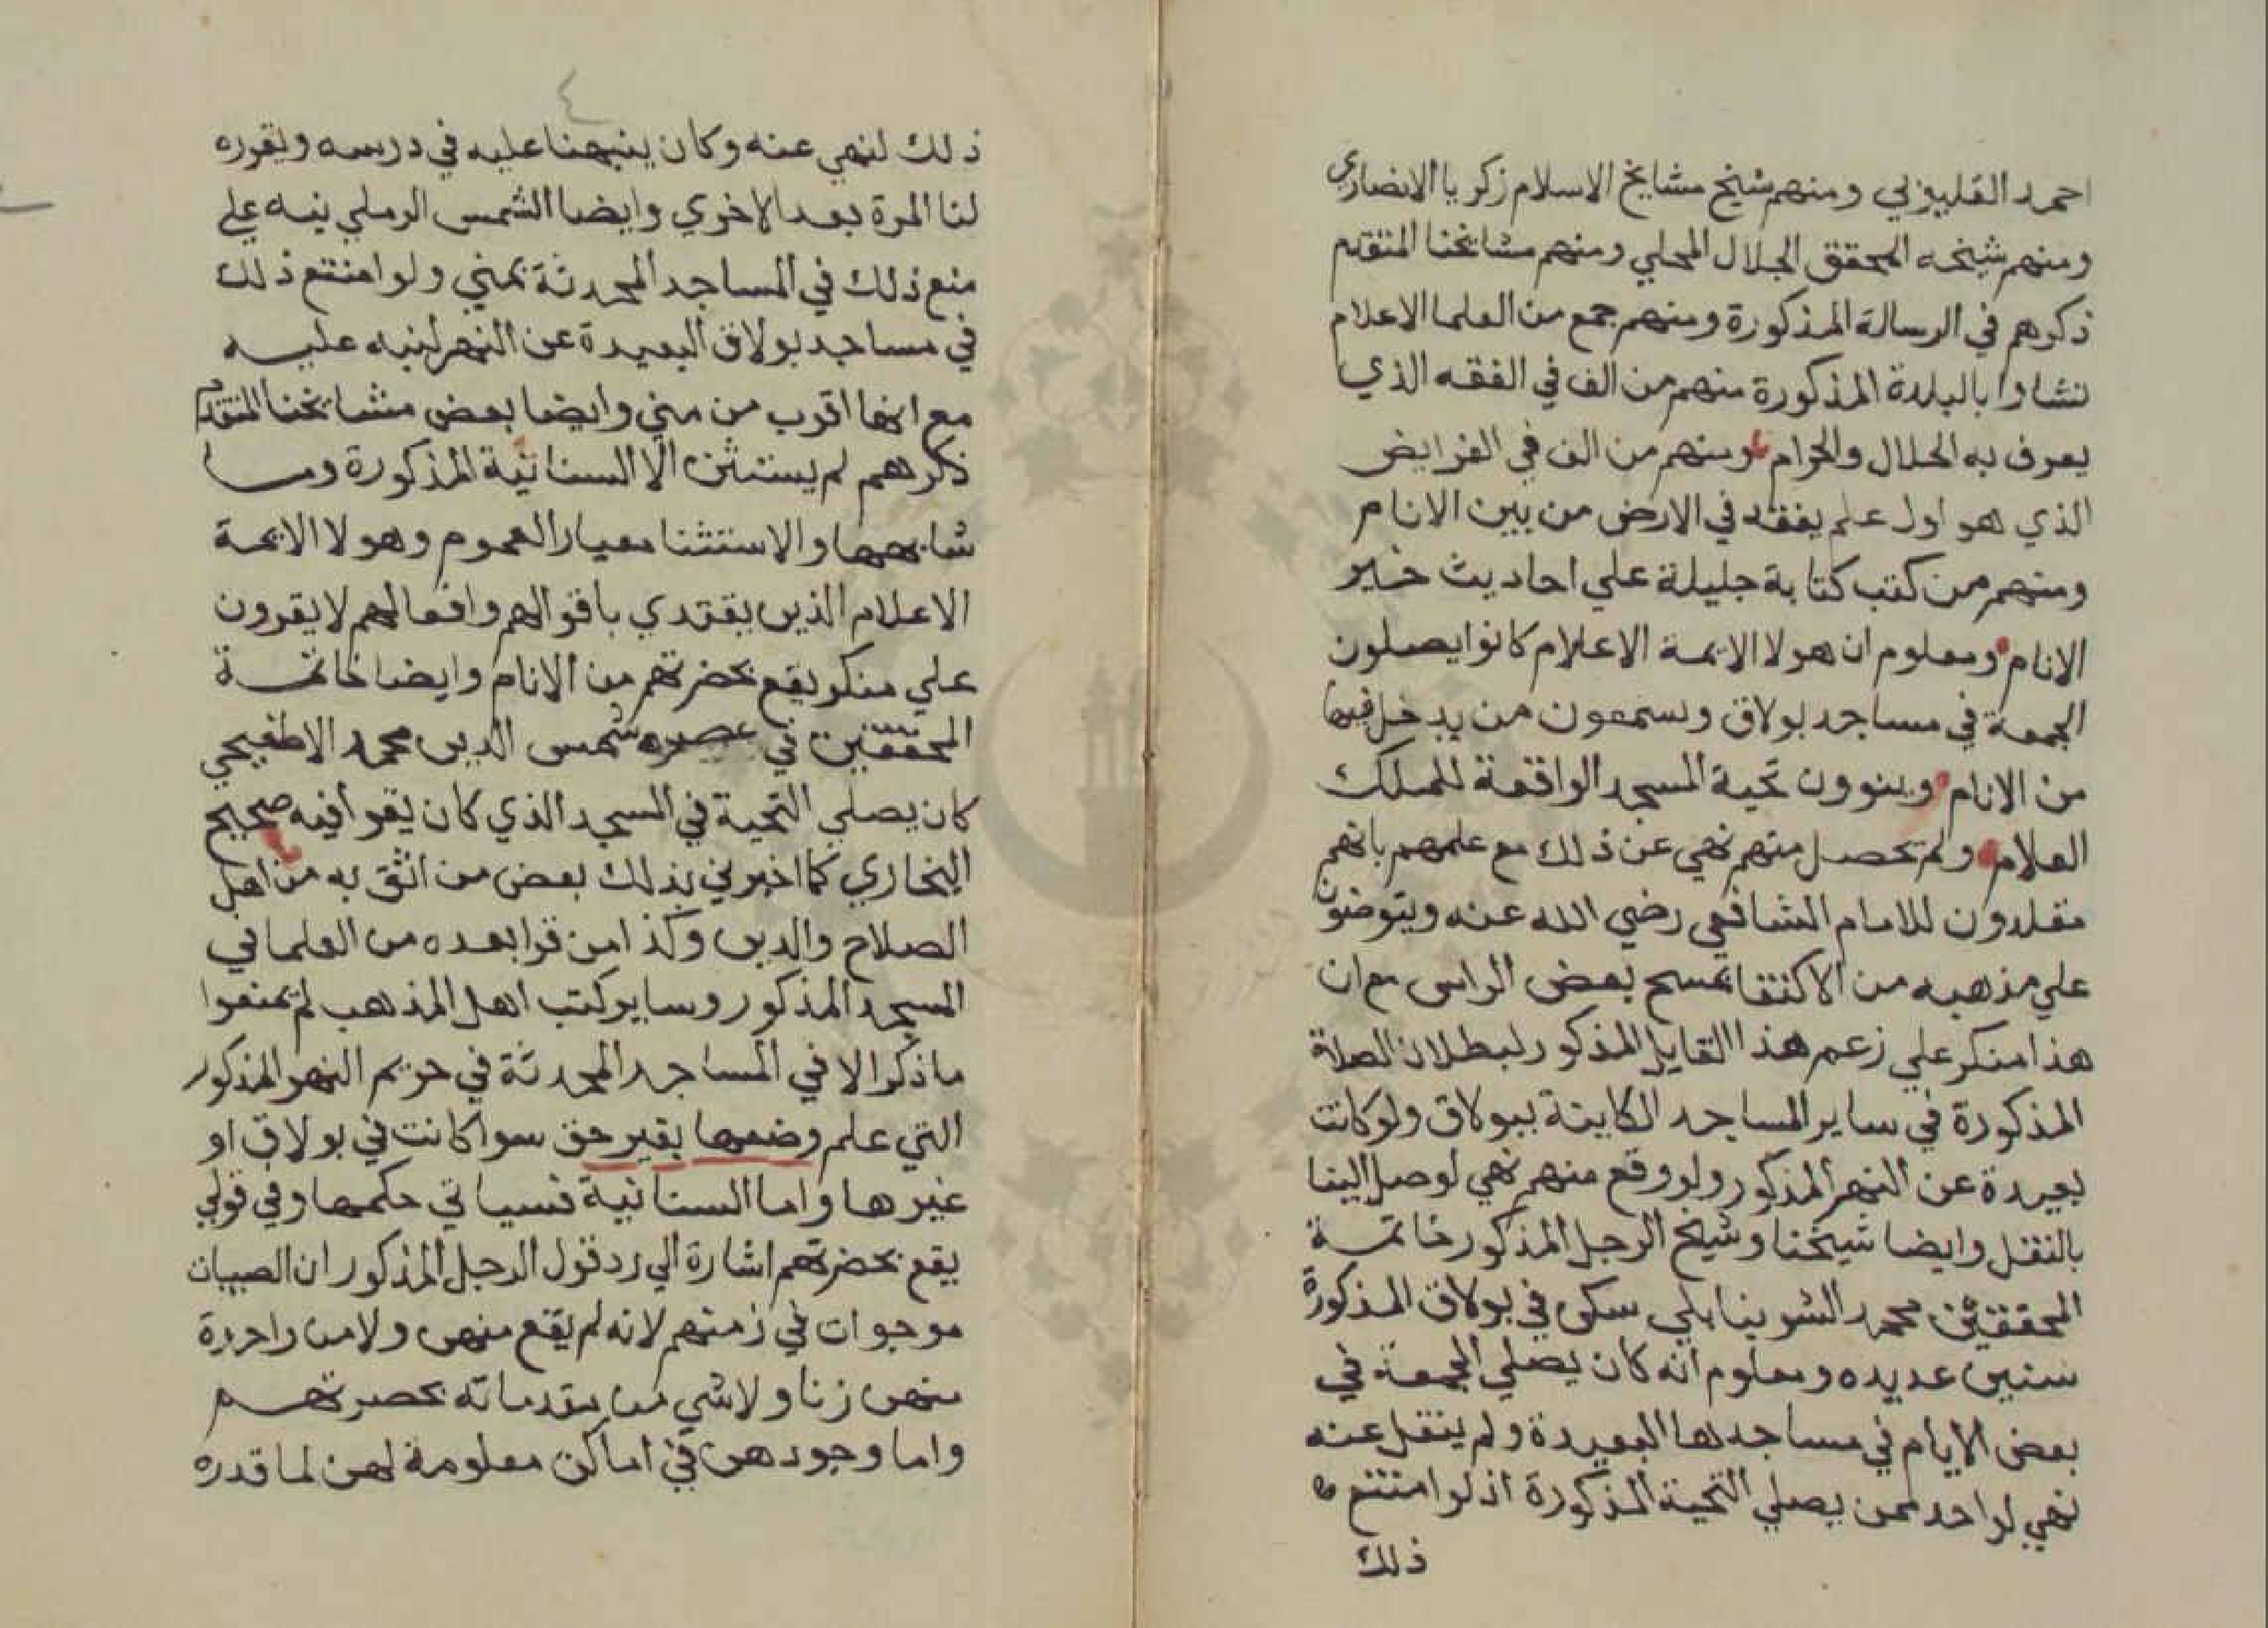 احمد القليوبي ومنهم شيخ مشايخ الاسلام زكريا الانصاري
ومنهم شيخه المحقق الجلال المحلي ومنهم مشايخنا المتقدم
ذكرهم في الرسالة المذكورة ومنهم جمع من العلما الاعلام
نشاوا بالبلدة المذكورة منهم من الف في الفقه الذي
يعرف به الحلال والحرام ومنهم من الف في الفرايض
الذي هو اول علم يفقد في الارض من بين الانام
ومنهم من كتب كتابة جليلة علي احاديث خير
الانام ومعلوم ان هولا الايمة الاعلام كانوا يصلون
الجمعة في مساجد بولاق ويسمعون من يدخل فيها
من الانام وينوون تحية المسجد الواقعة للملك
العلام ولم يحصل منهم نهي عن ذلك مع علمهم بانهم
مقلدون للامام الشافعي رضي الله عنه ويتوضون
علي مذهبه من الاكتفا بمسح بعض الراس مع ان
هذا منكر علي زعم هذا القايل المذكور لبطلان الصلاة
المذكورة في ساير المساجد الكاينة ببولاق ولو كانت
بعيدة عن النهر المذكور ولو وقع منهم نهي لوصل الينا
بالنقل وايضا شيخنا وشيخ الرجل المذكور خاتمة
المحققين محمد الشوبنايلي سكن في بولاق المذكورة
سنين عديده ومعلوم انه كان يصلي الجمعة في
بعض الايام في مساجدها البعيدة ولم ينقل عنه
نهي لواحد ممن يصلي التحية المذكورة اذ لو امتنع
ذلك
٤
ذلك لنهي عنه وكان ينبهنا عليه في درسه ويقرره
لنا المرة بعد الاخري وايضا الشمس الرملي نبه علي
منع ذلك في المساجد المحدثة بمني ولو امتنع ذلك
في مساجد بولاق البعيدة عن النهر لنبه عليه
مع انها اقرب من مني وايضا بعض مشايخنا المتقدم
ذكرهم لم يستثن الا السنانية المذكورة وما
شابهها والاستثنا معيار العموم وهولا الايمة
الاعلام الذين يقتدي باقوالهم وافعالهم لا يقرون
علي منكر يقع بحضرتهم من الانام وايضا خاتمة
المحققين في عصره شمس الدين محمد الاطفيحي
كان يصلي التحية في المسجد الذي كان يقرا فيه صحيح
البخاري كما اخبرني بذلك بعض من اثق به من اهل
الصلاح والدين وكذا من قرا بعده من العلما في
المسجد المذكور وساير كتب اهل المذهب لم يمنعوا
ما ذكر الا في المساجد المحدثة في حريم النهر المذكور
التي علم وضعها بغير حق سوا كانت في بولاق او
غيرها واما السنانية فسياتي حكمها وفي قولي
يقع بحضرتهم اشارة الي رد قول الرجل المذكور ان الصبيان
موجوات في زمنهم لانه لم يقع منهن ولا من واحدة
منهن زنا ولا شي من مقدماته بحضرتهم
واما وجودهن في اماكن معلومة لهن لما قدره